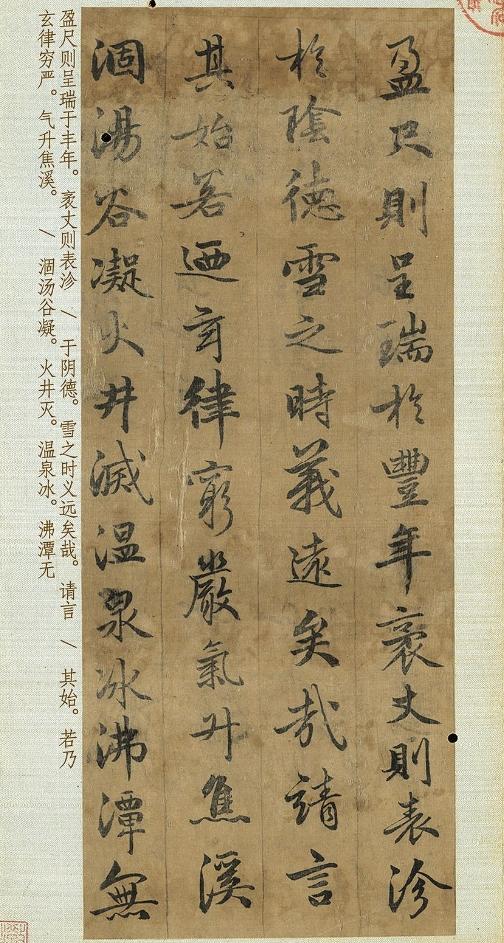 盈尺則呈瑞於豐年袤丈則表沴
於陰德雪之時義遠矣哉請言
其始若迺玄律窮嚴氣升焦溪
涸湯谷凝火井滅温泉冰沸潭無
盈尺则呈瑞于丰年。袤丈则表沴 \ 于阴德。雪之时义远矣哉。请言 \ 其始。若乃
玄律穷严。气升焦溪。 \ 涸汤谷凝。火井灭。温泉冰。沸潭无